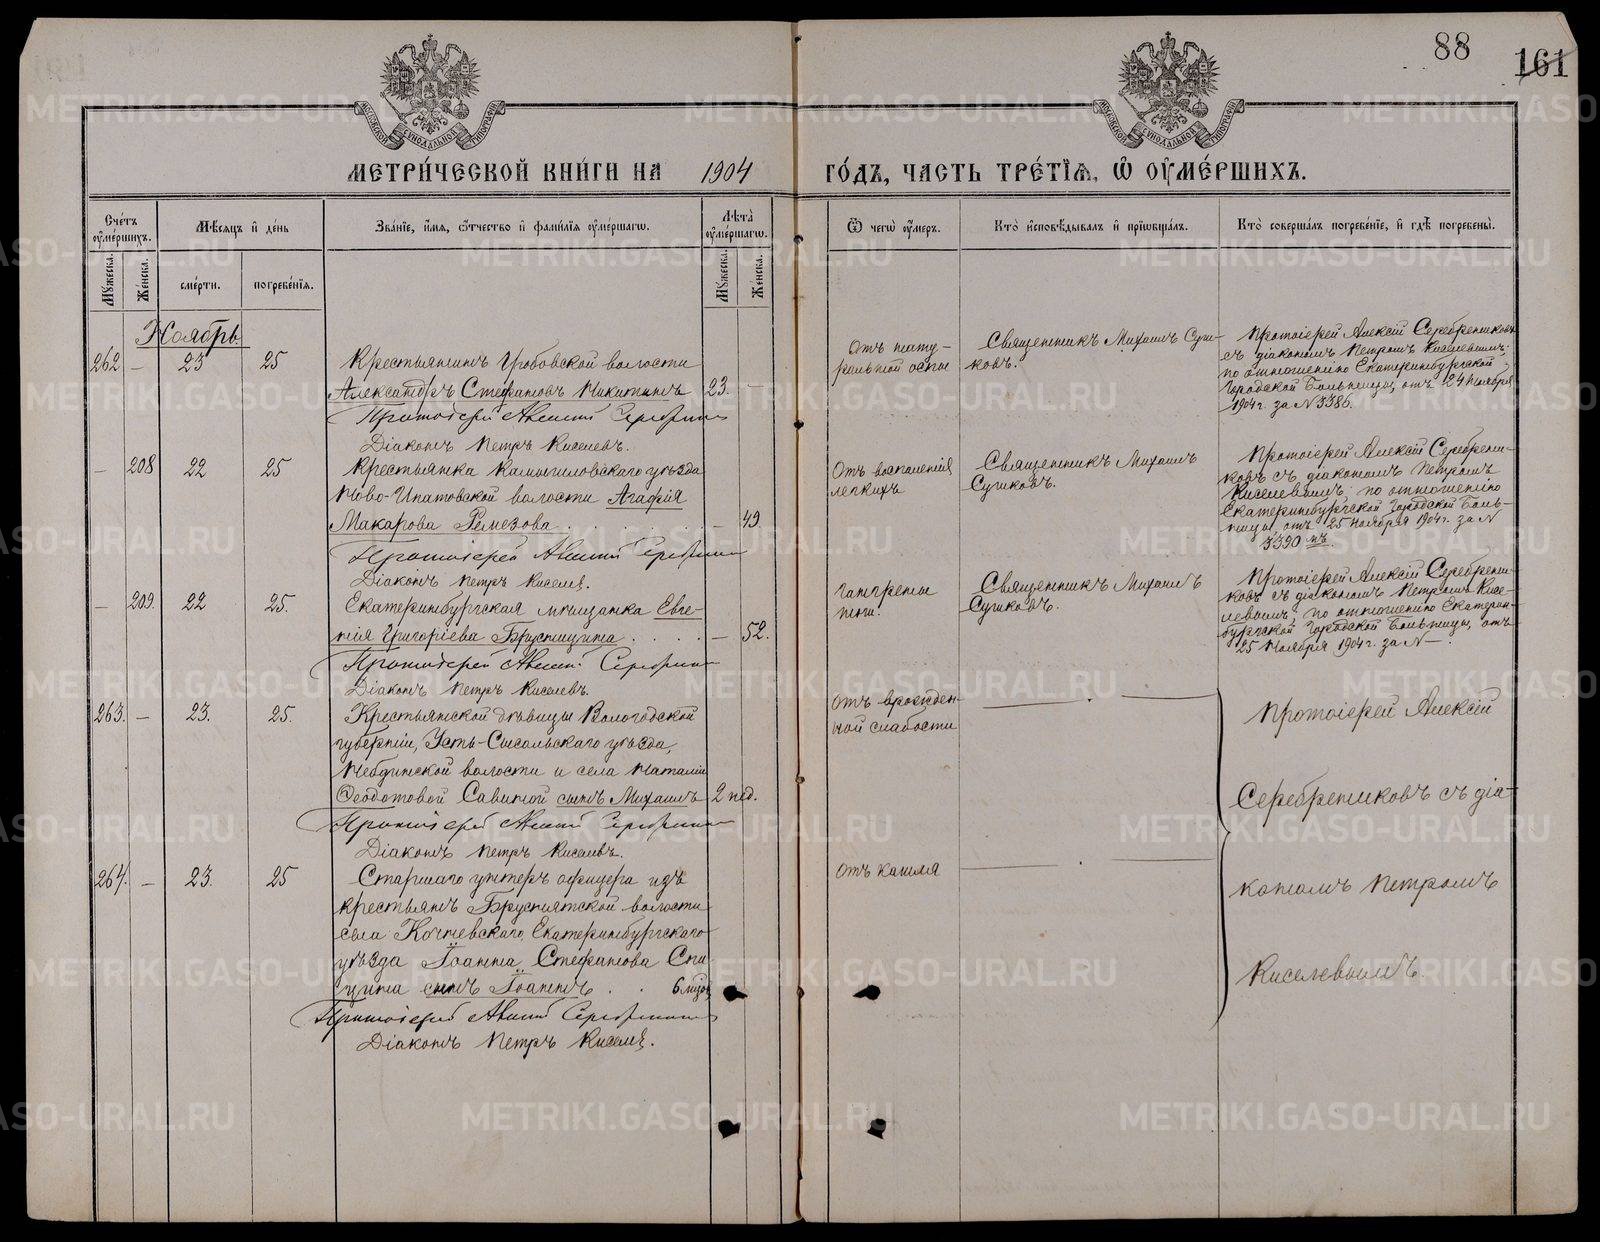 88
161
МЕТРИ́ЧЕСКОЙ КНИ́ГИ НА 1904 ГО́ДЪ, ЧАСТЬ ТРЕ́ТІѦ, Ѡ ОУМЕ́РШИХЪ.
Сче́тъ оумершихъ.
Мѣсяцъ и день
Зва́ніе, и́мя, ѻ́тчество и фами́лія оуме́ршагѡ.
Лѣта̀ оуме́ршагѡ.
Ѿ чегѡ̀ оу́меръ.
Кто̀ исповѣ́дывалъ и пріѡбща́лъ.
Кто̀ соверша́лъ погребе́ніе, и гдѣ̀ погребены̀.
Мужеска.
Женска.
сме́рти.
погребе́нія.
Мужеска.
Женска.
Ноябрь
262 — 23 25
Крестьянинъ Гробовской волости
Александръ Стефановъ Никитинъ 23. —
Протоіерей Алексій Серебрениковъ
Діаконъ Петръ Киселевъ.
Отъ нату-
ральной оспы
Священникъ Михаилъ Суш-
ковъ.
Протоіерей Алексій Серебрениковъ
съ діакономъ Петромъ Киселевымъ,
по отношенію Екатеринбургской
Городской Больницы, отъ 24 Ноября
1904 г. за N 3386.
— 208 22 25
Крестьянка Камышловскаго уѣзда
Ново-Ипатовской волости Агафія
Макарова Ремезова — 49.
Протоіерей Алексій Серебрениковъ
Діаконъ Петръ Киселевъ.
Отъ воспаленія
легкихъ
Священникъ Михаилъ
Сушковъ.
Протоіерей Алексій Серебрени-
ковъ съ діакономъ Петромъ
Киселевымъ, по отношенію
Екатеринбургской Городской Боль-
ницы, отъ 25 Ноября 1904 г. за N
3390
— 209. 22 25.
Екатеринбургская мѣщанка Евге-
нія Григоріева Брусницина — 52.
Протоіерей Алексій Серебрениковъ
Діаконъ Петръ Киселевъ.
Гангрены
ноги.
Священникъ Михаилъ
Сушковъ.
Протоіерей Алексій Серебрени-
ковъ съ діакономъ Петромъ Кисе-
левымъ, по отношенію Екатерин-
бургской Городской Больницы, отъ
25 Ноября 1904 г. за N —
263. — 23. 25.
Крестьянской дѣвицы Вологодской
губерніи, Усть-Сысольскаго уѣзда,
Небдинской волости и села Наталіи
Ѳеодотовой Савиной сынъ Михаилъ 2 нед.
Протоіерей Алексій Серебрениковъ
Діаконъ Петръ Киселевъ.
Отъ врожден-
ной слабости
Протоіерей Алексій
Серебрениковъ съ діа-
кономъ Петромъ
Киселевымъ.
264. — 23. 25
Старшаго унтеръ офицера изъ
крестьянъ Бруснятской волости
села Кочневскаго, Екатеринбургскаго
уѣзда Іоанна Стефанова Спи-
цина сынъ Іоаннъ 6 мѣс.
Протоіерей Алексій Серебрениковъ
Діаконъ Петръ Киселевъ.
Отъ кашля
METRIKI.GASO-URAL.RU